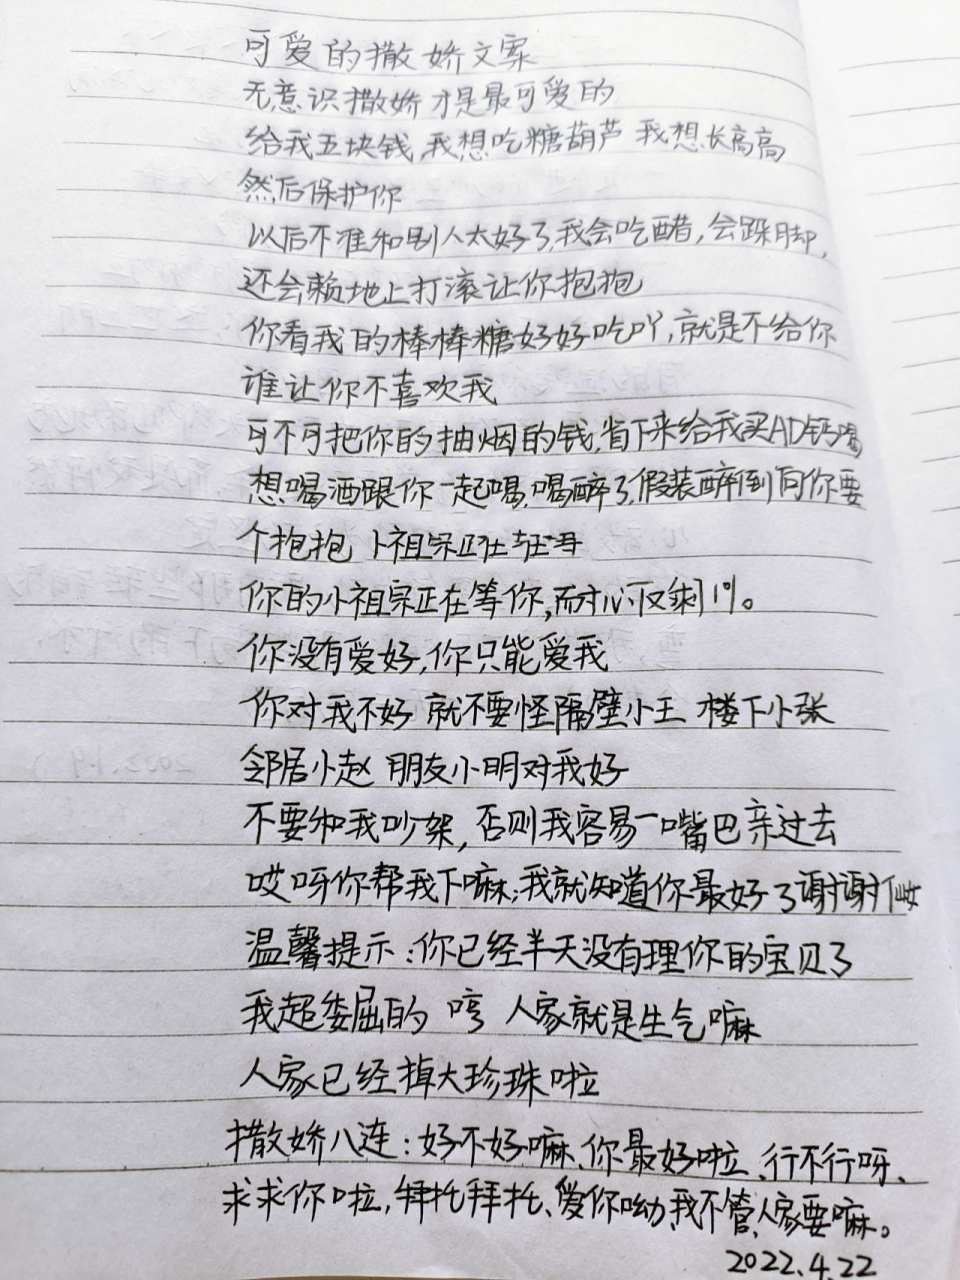 可爱的撒娇文案
无意识撒娇才是最可爱的
给我五块钱,我想吃糖葫芦 我想长高高
然后保护你
以后不准和别人太好了,我会吃醋,会跺脚,
还会赖地上打滚让你抱抱
你看我的棒棒糖好好吃吖,就是不给你
谁让你不喜欢我
可不可把你的抽烟的钱,省下来给我买AD钙喝
想喝酒跟你一起喝,喝醉了,假装醉倒向你要
个抱抱 小祖宗正在
你的小祖宗正在等你,耐心仅剩1%。
你没有爱好,你只能爱我
你对我不好 就不要怪隔壁小王 楼下小张
邻居小赵 朋友小明对我好
不要和我吵架,否则我容易一嘴巴亲过去
哎呀你帮我下嘛;我就知道你最好了谢谢
温馨提示:你已经半天没有理你的宝贝了
我超委屈的 哼 人家就是生气嘛
人家已经掉大珍珠啦
撒娇八连:好不好嘛、你最好啦、行不行呀、
求求你啦,拜托拜托、爱你呦、我不管、人家要嘛。
2022.4.22